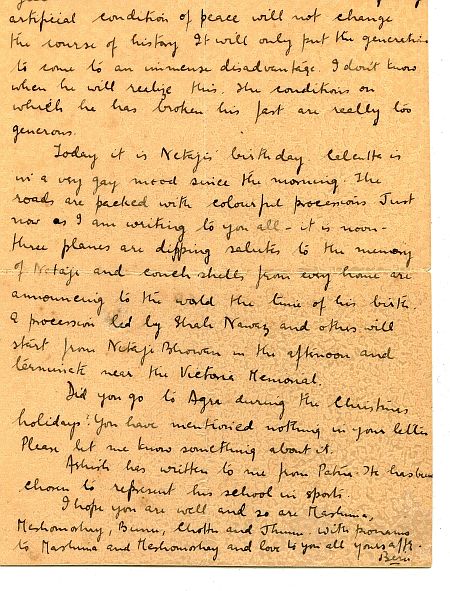 artificial condition of peace will not change
the course of history. It will only put the generation
to come to an immense disadvantage. I don't know
when he will realize this. The conditions on
which he has broken his fast are really too
generous.
Today it is Netaji's birthday. Calcutta is
in a very gay mood since the morning. The
roads are packed with colourful processions. Just
now as I am writing to you all - it is noon -
three planes are dipping salutes to the memory
of Netaji and conch shells from every home are
announcing to the world the time of his birth.
A procession led by Shah Nawaz and others will
start from Netaji Bhowan in the afternoon and
terminate near the Victoria Memorial.
Did you go to Agra during the Christmas
holidays? You have mentioned nothing in your letter.
Please let me know something about it.
Ashish has written to me from Patna. He has been
chosen to represent his school in sports.
I hope you are well and so are Mashima,
Meshomoshay, and with pronams
to Mashima and Meshomoshay and love to you all yours affc.